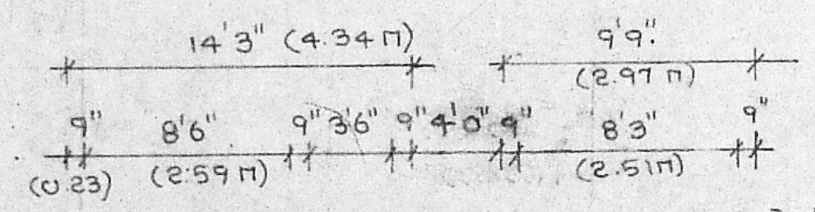 14'3" (4.34 M) 9'9".
(2.97 M)
9" 8'6" 9" 3'6" 9" 4'0" 9" 8'3" 9"
(0.23) (2.59 M) (2.51M)